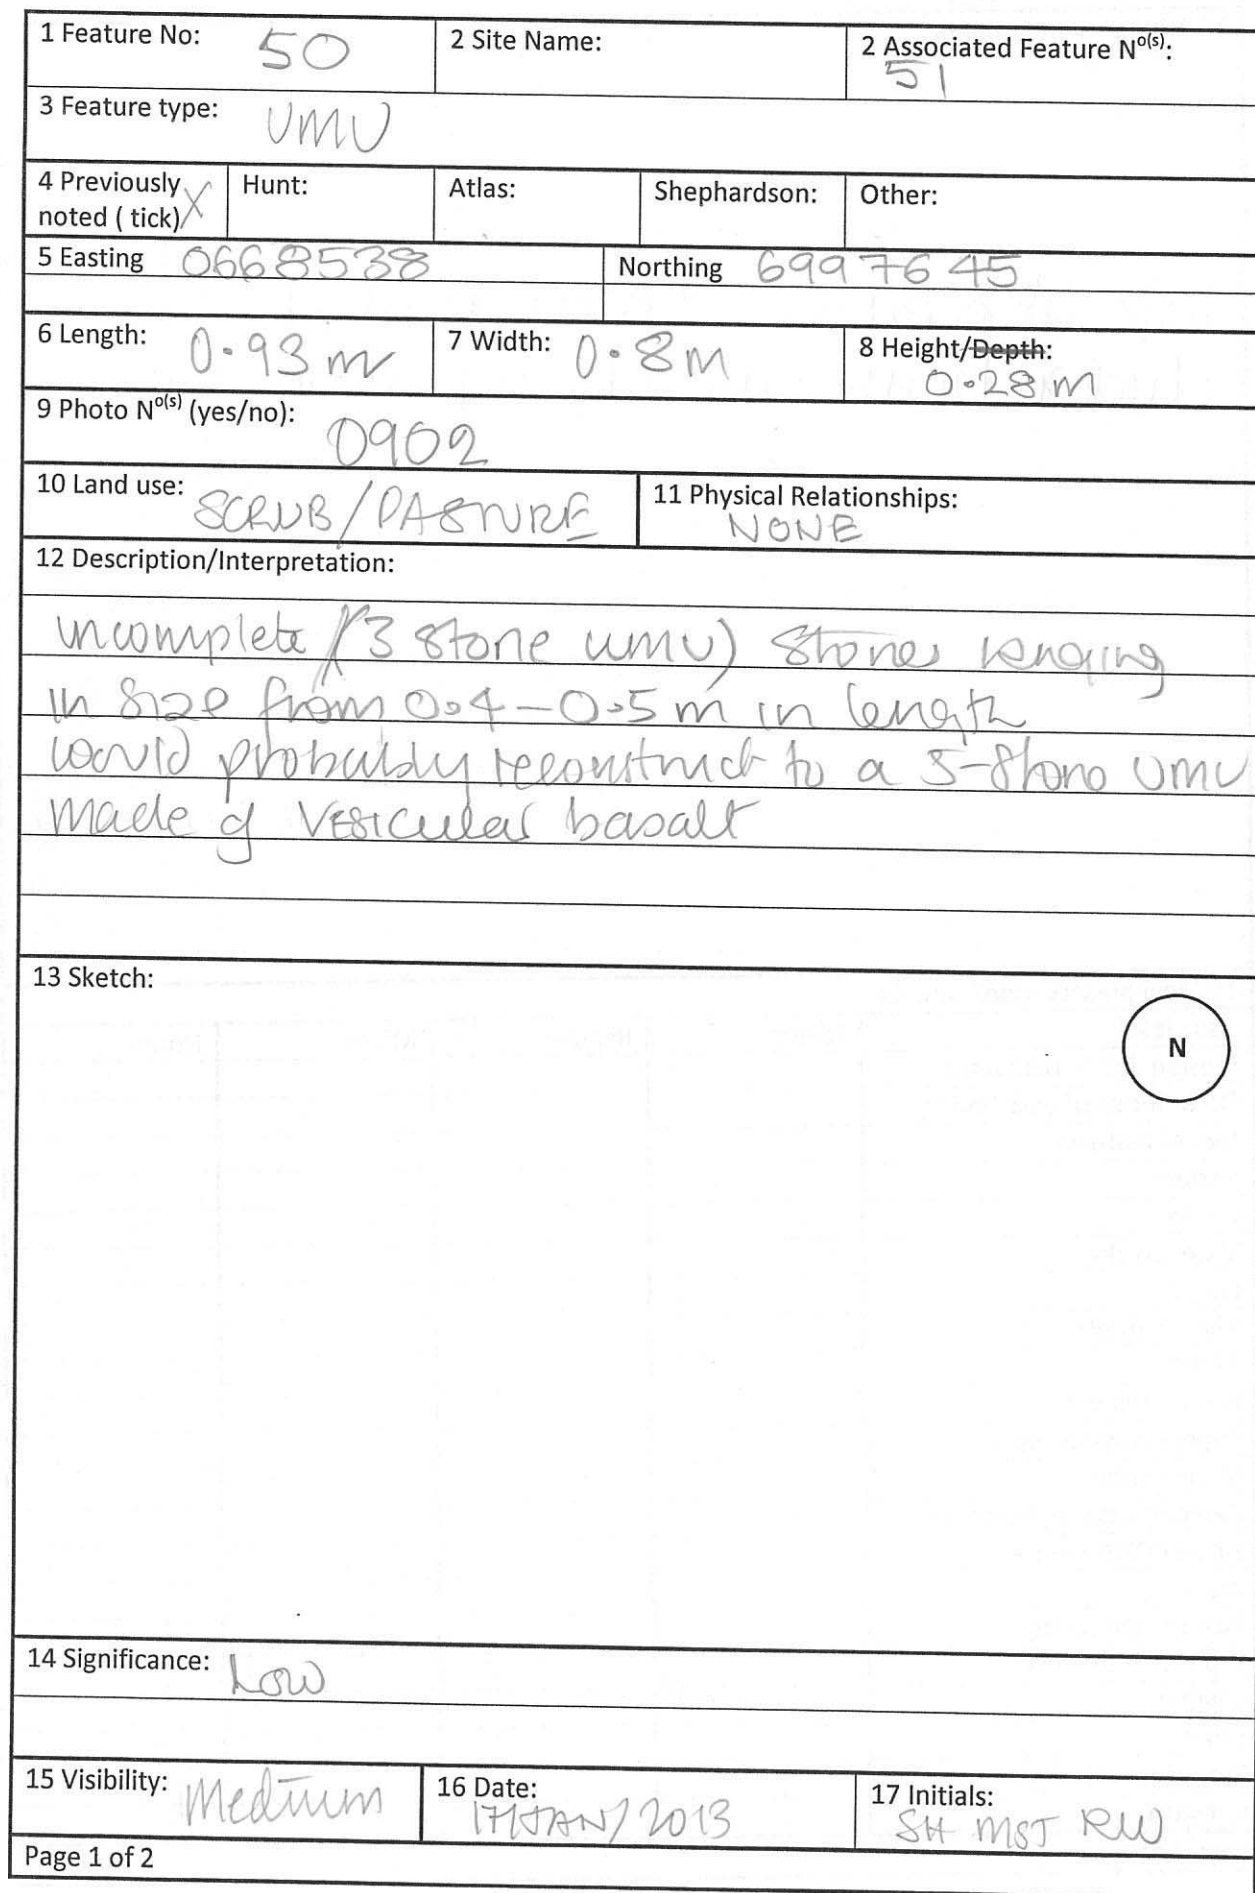 1 Feature No: 50 2 Site Name: 2 Associated Feature No(s): 51
3 Feature type: UMU
4 Previously noted ( tick) X Hunt: Atlas: Shephardson: Other:
5 Easting 0668538 Northing 6997645
6 Length: 0.93 m 7 Width: 0.8 m 8 Height/Depth: 0.28 m
9 Photo No(s) (yes/no): 0902
10 Land use: SCRUB/PASTURE 11 Physical Relationships: NONE
12 Description/Interpretation:
incomplete (3 stone umu) Stones ranging
in size from 0.4 - 0.5 m in length
would probably reconstruct to a 5-stone UMU
made of vesicular basalt
13 Sketch:
N
14 Significance: Low
15 Visibility: Medium 16 Date: 17/JAN/2013 17 Initials: SH MST RW
Page 1 of 2